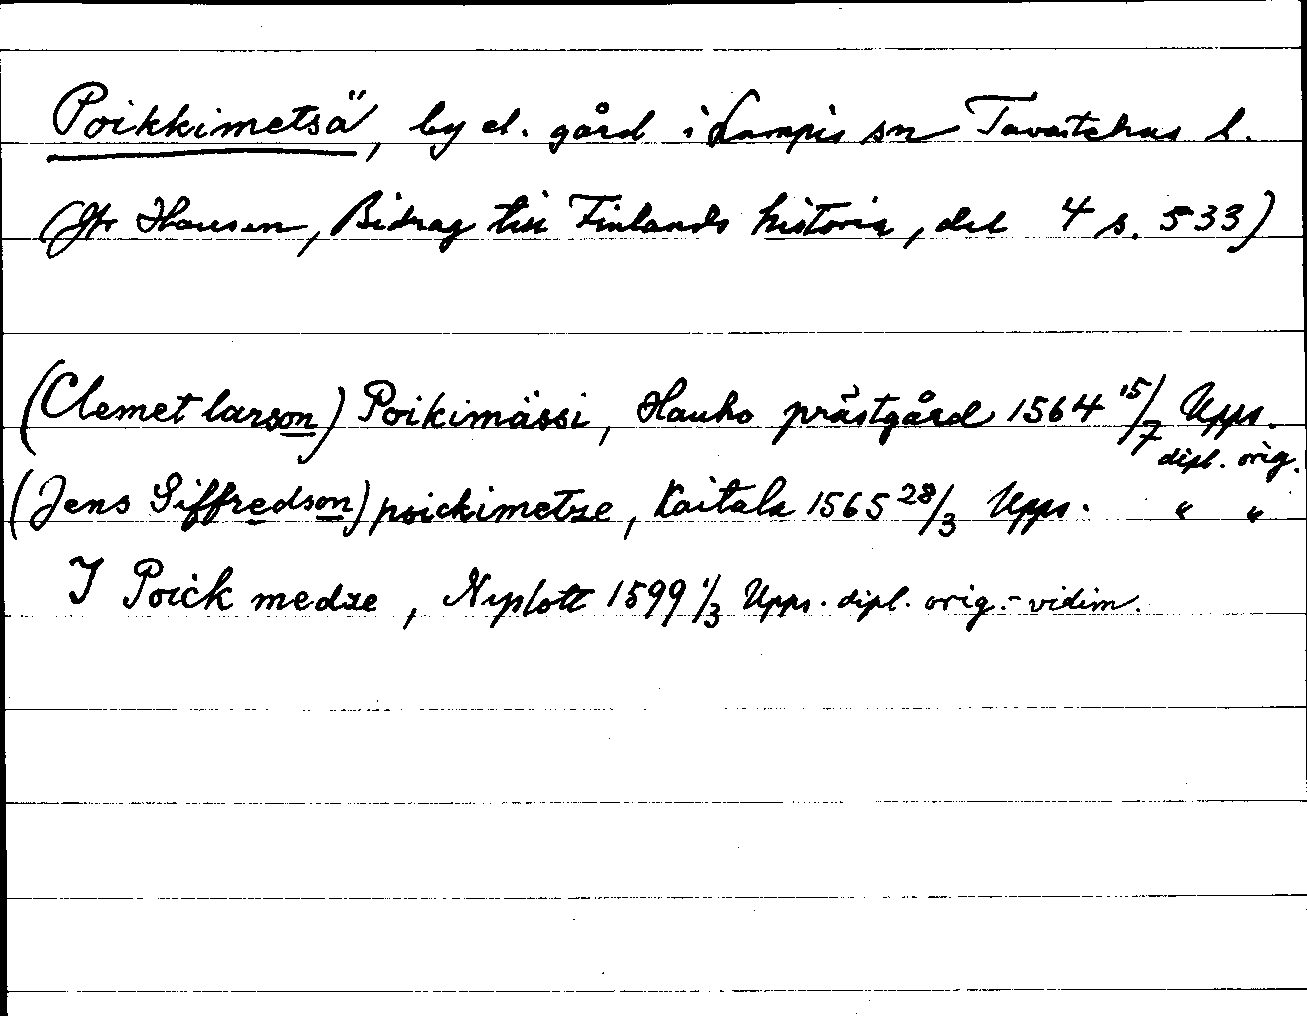 Poikkimetsä, by el. gård i Lampis sn Tavastehus l.
(Jfr Hausen, Bidrag till Finlands historia, del 4 s. 533)
(Clemet larson) Poikimässi, Hauho prästgård 1564 15/7 Upps. dipl. orig.
(Jens Siffredson) poickimetze, Kaitala 1565 28/3 Upps. " "
I Poick medze, Nyslott 1599 1/3 Upps. dipl. orig.-vidim.